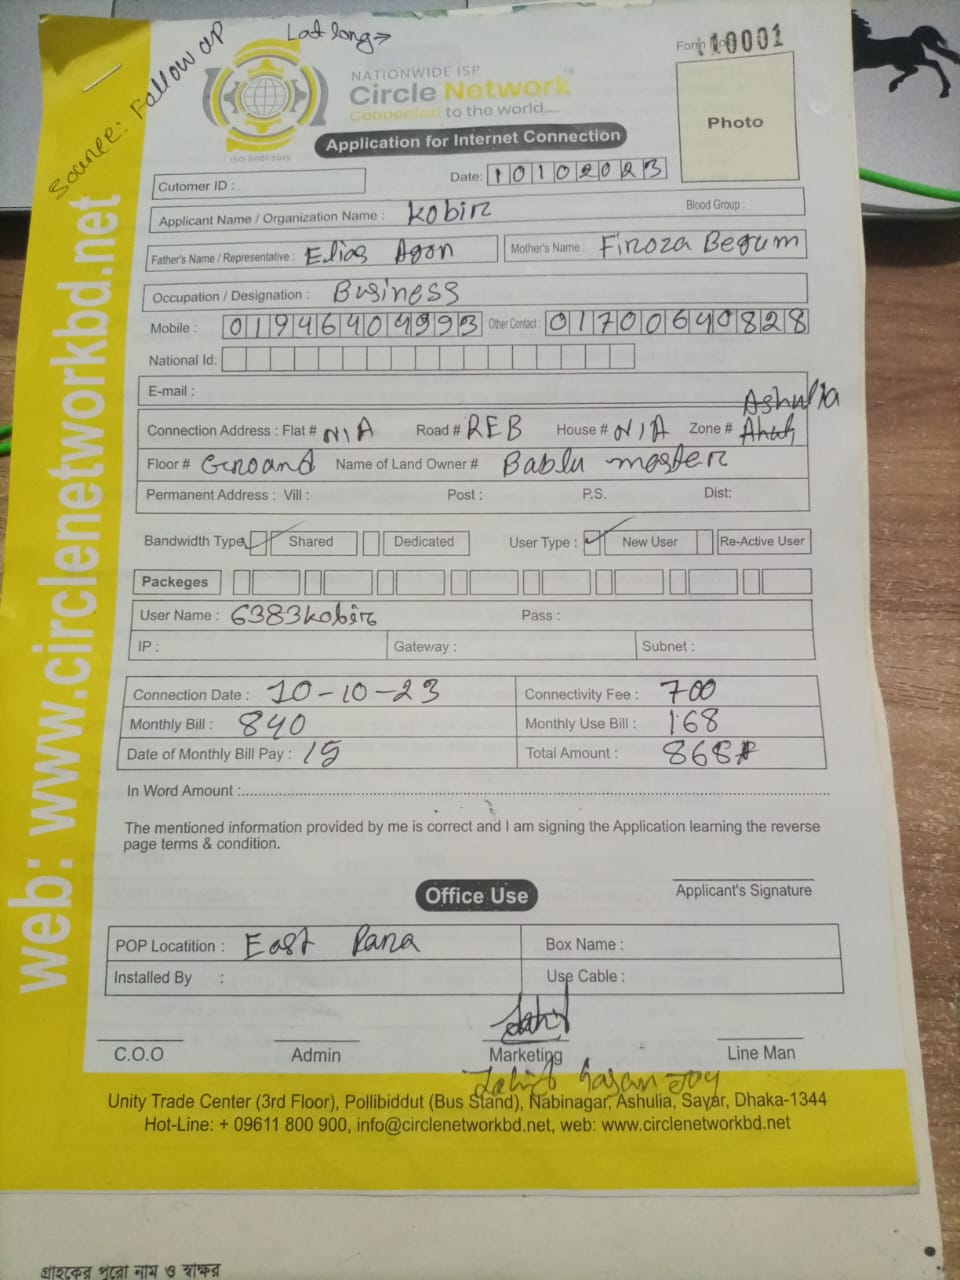 Source: Follow up
Lat long→
Form No: 10001
NATIONWIDE ISP
Circle Network™
Connected to the world.....
ISO 9001:2015
Application for Internet Connection
Photo
Cutomer ID :
Date: 10102023
Applicant Name / Organization Name : Kobir
Blood Group :
Father's Name / Representative : Elias Agon
Mother's Name : Firoza Begum
Occupation / Designation : Business
Mobile : 01946404993 Other Contact : 01700640828
National Id:
E-mail :
Ashulia
Connection Address : Flat # N/A Road # REB House # N/A Zone #
Floor # Ground Name of Land Owner # Bablu master
Permanent Address : Vill : Post : P.S. Dist:
Bandwidth Type Shared Dedicated User Type : New User Re-Active User
Packeges
User Name : 6383kobir Pass :
IP : Gateway : Subnet :
Connection Date : 10-10-23 Connectivity Fee : 700
Monthly Bill : 840 Monthly Use Bill : 168
Date of Monthly Bill Pay : 15 Total Amount : 868
In Word Amount :
The mentioned information provided by me is correct and I am signing the Application learning the reverse
page terms & condition.
Applicant's Signature
Office Use
POP Locatition : East Para Box Name :
Installed By : Use Cable :
C.O.O Admin Marketing Line Man
Unity Trade Center (3rd Floor), Pollibiddut (Bus Stand), Nabinagar, Ashulia, Savar, Dhaka-1344
Hot-Line: + 09611 800 900, info@circlenetworkbd.net, web: www.circlenetworkbd.net
web: www.circlenetworkbd.net
গ্রাহকের পুরো নাম ও স্বাক্ষর